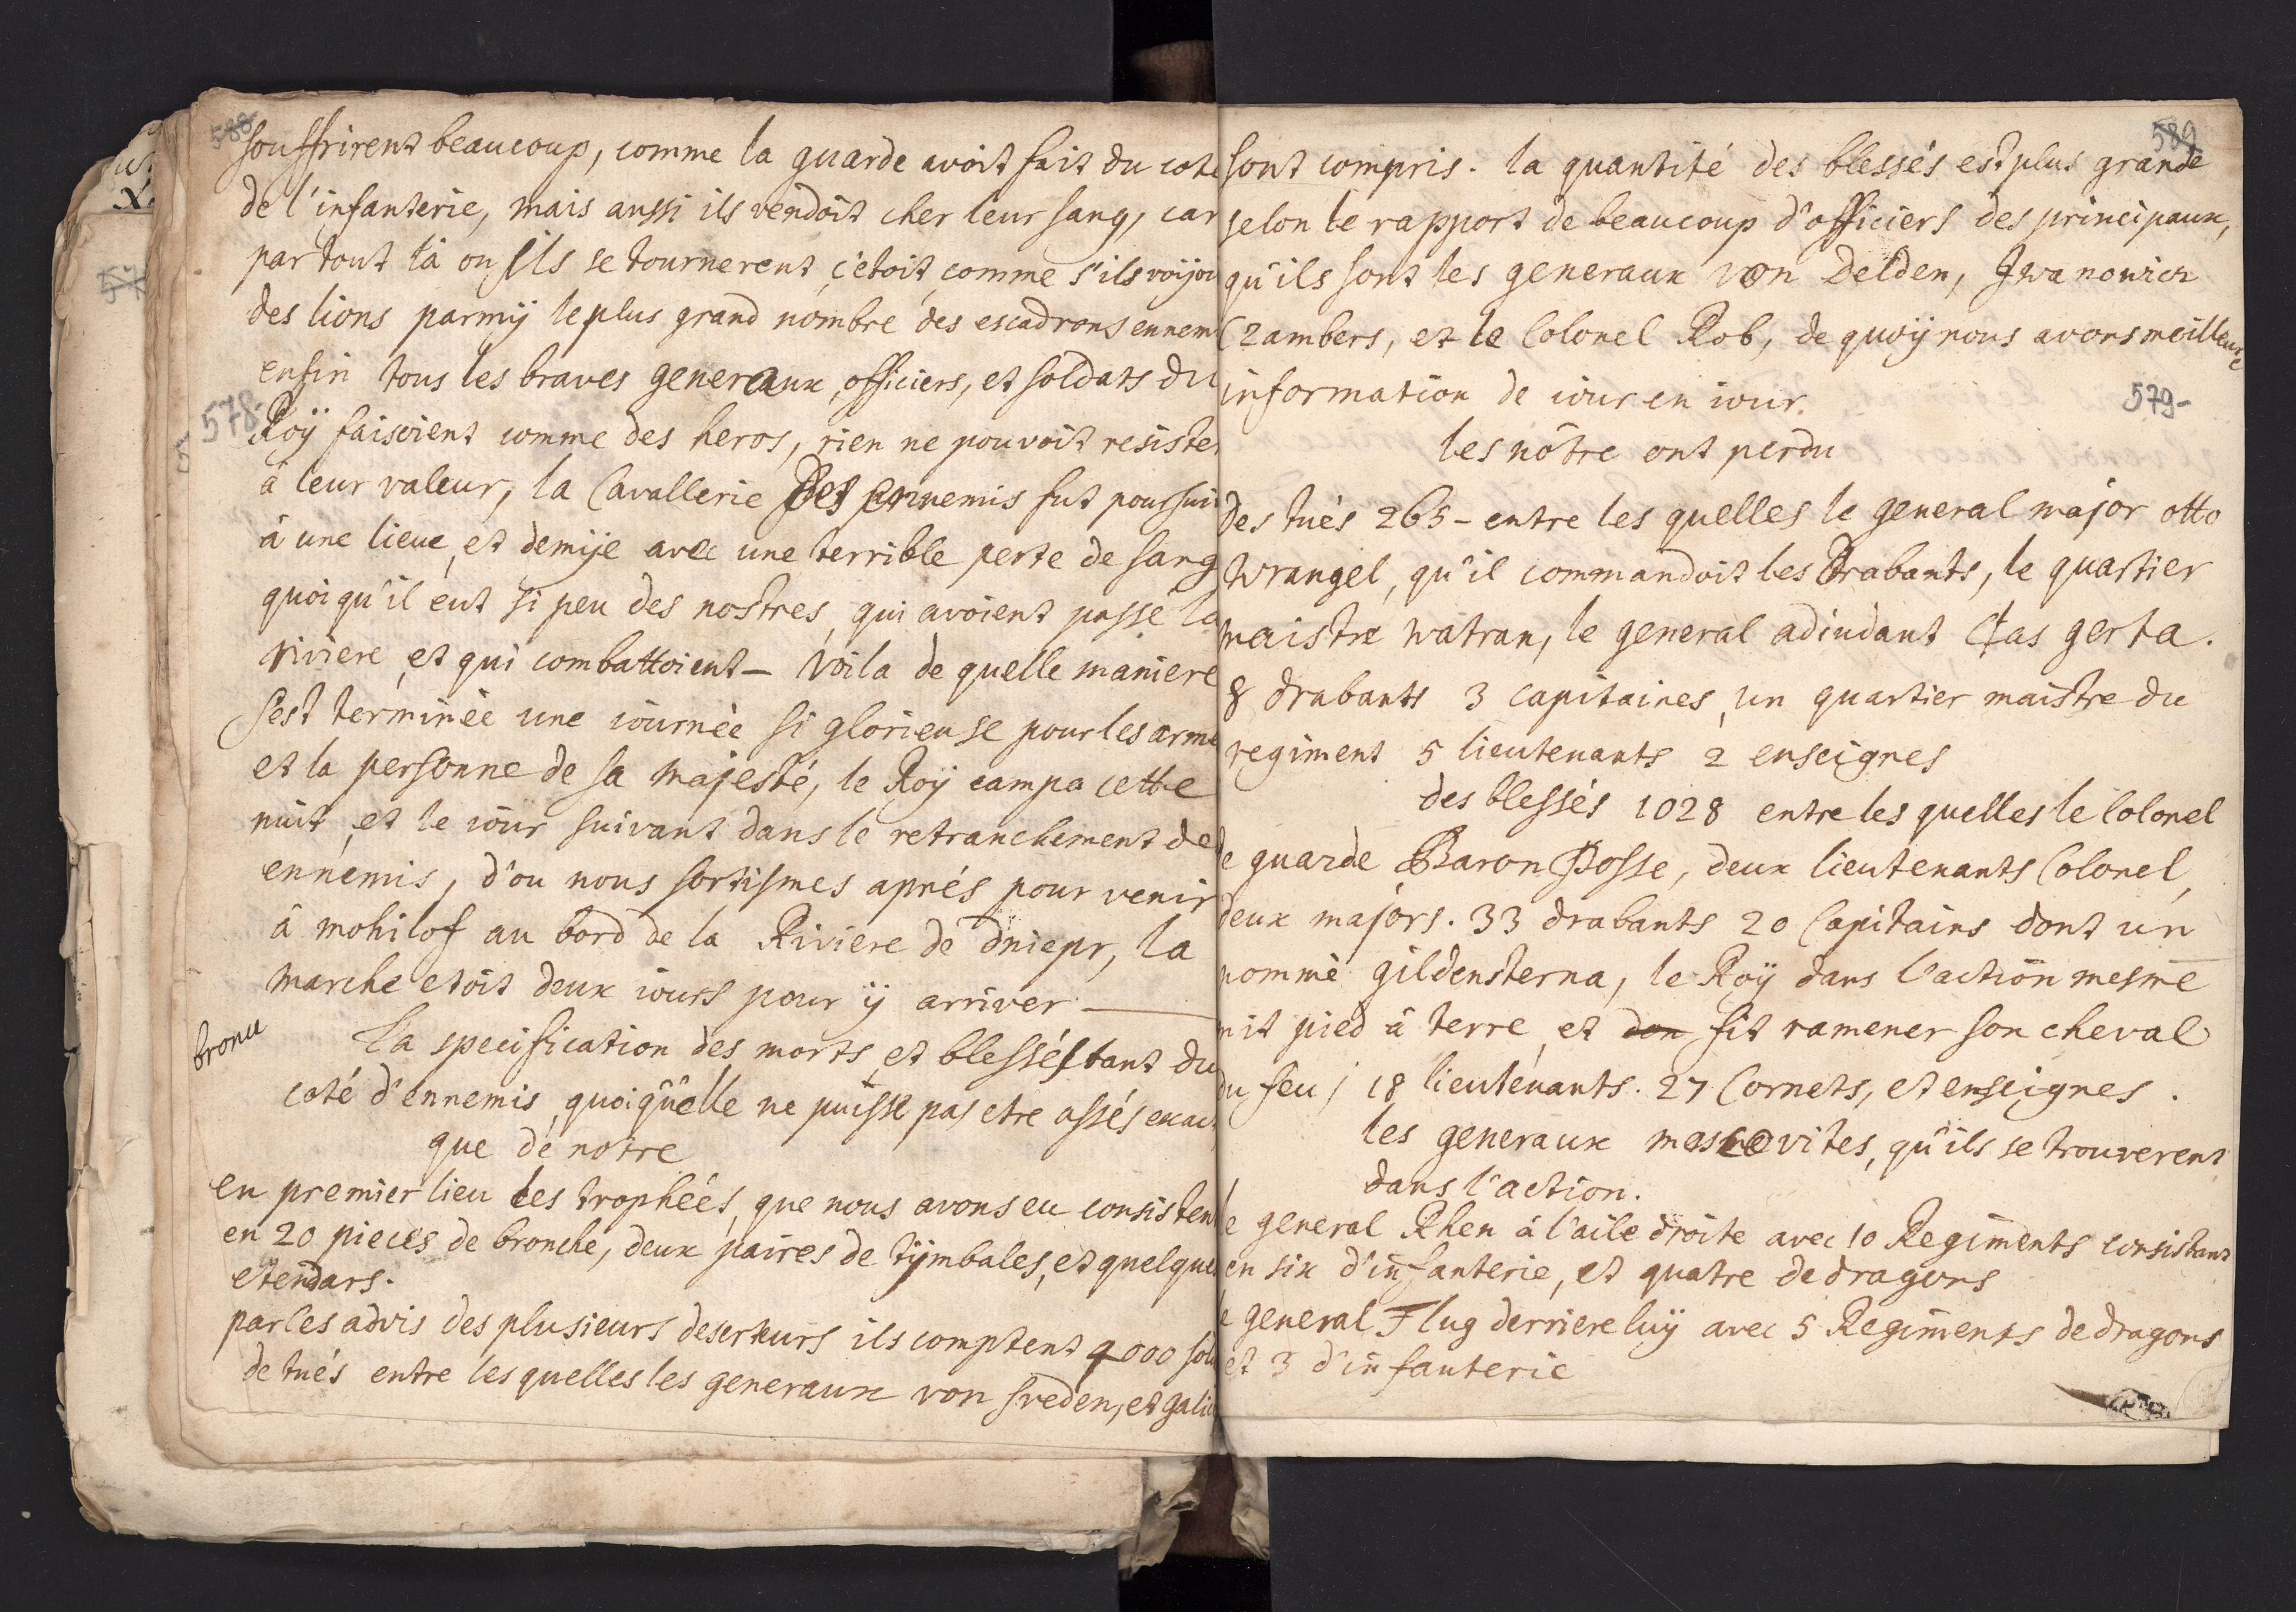 588
souffrirent beaucoup, comme la guarde avoit fait du coté
de l'infanterie, mais aussi ils vendoit cher leur sang, car
par tout là ou ils se tournerent, c'etoit comme s'ils voijoi
des lions parmÿ le plus grand nombre des escadrons ennem
enfin tous les braves generaux, officiers, et soldats du
578.
Roÿ faisoient comme des heros, rien ne pouvoit resister
à leur valeur, la Cavallerie des ennemis fut poussui
à une lieue, et demije avec une terrible perte de sang
quoiqu'il eut si peu des nostres, qui avoient passé la
riviere, et qui combattoient – Voila de quelle maniere
s'est terminée une iournée si glorieuse pour les arme
et la personne de sa Majesté, le Roÿ campa cette
nuit, et le iour suivant dans le retranchement de
ennemis, d'ou nous sortismes aprés pour venir
à mohilof au bord de la Riviere de dniepr, la
marche etoit deux iours pour ÿ arriver —
bronu
La specification des morts, et blessés, tant du
coté d'ennemis, quoiqu'elle ne puisse pas etre assés exac
que de notre
en premier lieu les trophées, que nous avons eu consisten
en 20 pieces de bronche, deux paires de tÿmbales, et quelque
etendars.
par les advis des plusieurs deserteurs ils comptent 4000 sol
de tués entre les quelles les generaux von sreden, et gali
589
sont compris. la quantité des blessés est plus grande
selon le rapport de beaucoup d'officiers des principaux,
qu'ils sont les generaux von Delden, Iwanowicz
Czambers, et le Colonel Rob, de quoÿ nous avons meilleure
information de iour en iour.
579-
les nôtre ont perdu
des tués 265 – entre les quelles le general major otto
Wrangel, qu'il commandoit les Drabants, le quartier
maistre watran, le general adiudant Clas gerta.
8 drabants 3 capitaines, un quartier maistre du
regiment 5 lieutenants 2 enseignes
des blessés 1028 entre les quelles le Colonel
de guarde Baron Posse, deux lieutenants Colonel,
deux majors. 33 drabants 20 Capitains dont un
nommé gildensterna, le Roÿ dans l'action mesme
mit pied à terre, et don fit ramener son cheval
du feu; 18 lieutenants. 27 Cornets, et enseignes.
les generaux moscovites, qu'ils se trouverent
dans l'action.
le general Rhen à l'aile droite avec 10 Regiments consistant
en six d'infanterie, et quatre de dragons
le general Flug derriere luÿ avec 5 Regiments de dragons
et 3 d'infanterie